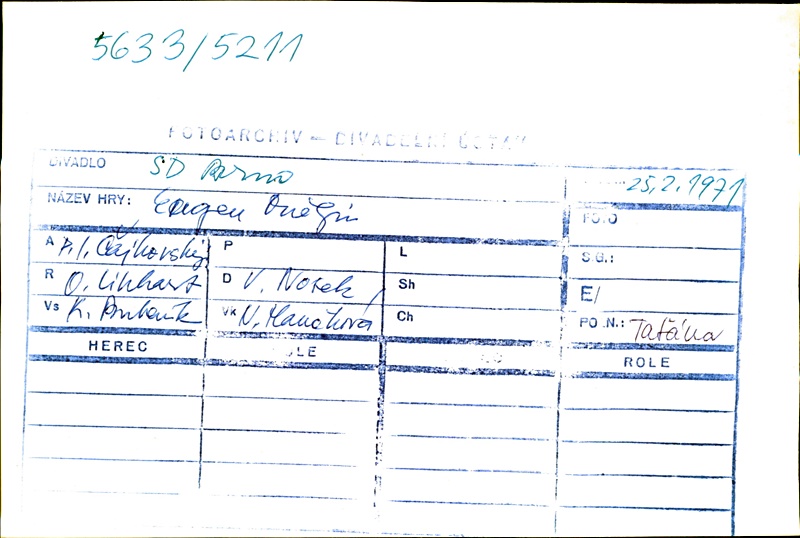 5633/5211
FOTOARCHIV — DIVADELNÍ ÚSTAV
DIVADLO SD Brno 25.2.1971
NÁZEV HRY: Eugen Oněgin FOTO
A P. I. Čajkovský P L S.G.:
R O. Linhart D V. Nosek Sh E/
Vs K. Bubeník Vk N. Hanáková Ch PO.N.: Taťána
HEREC ROLE ROLE